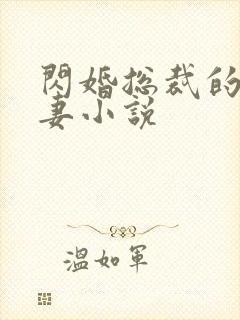 閃婚總裁的
妻小說
溫如軍